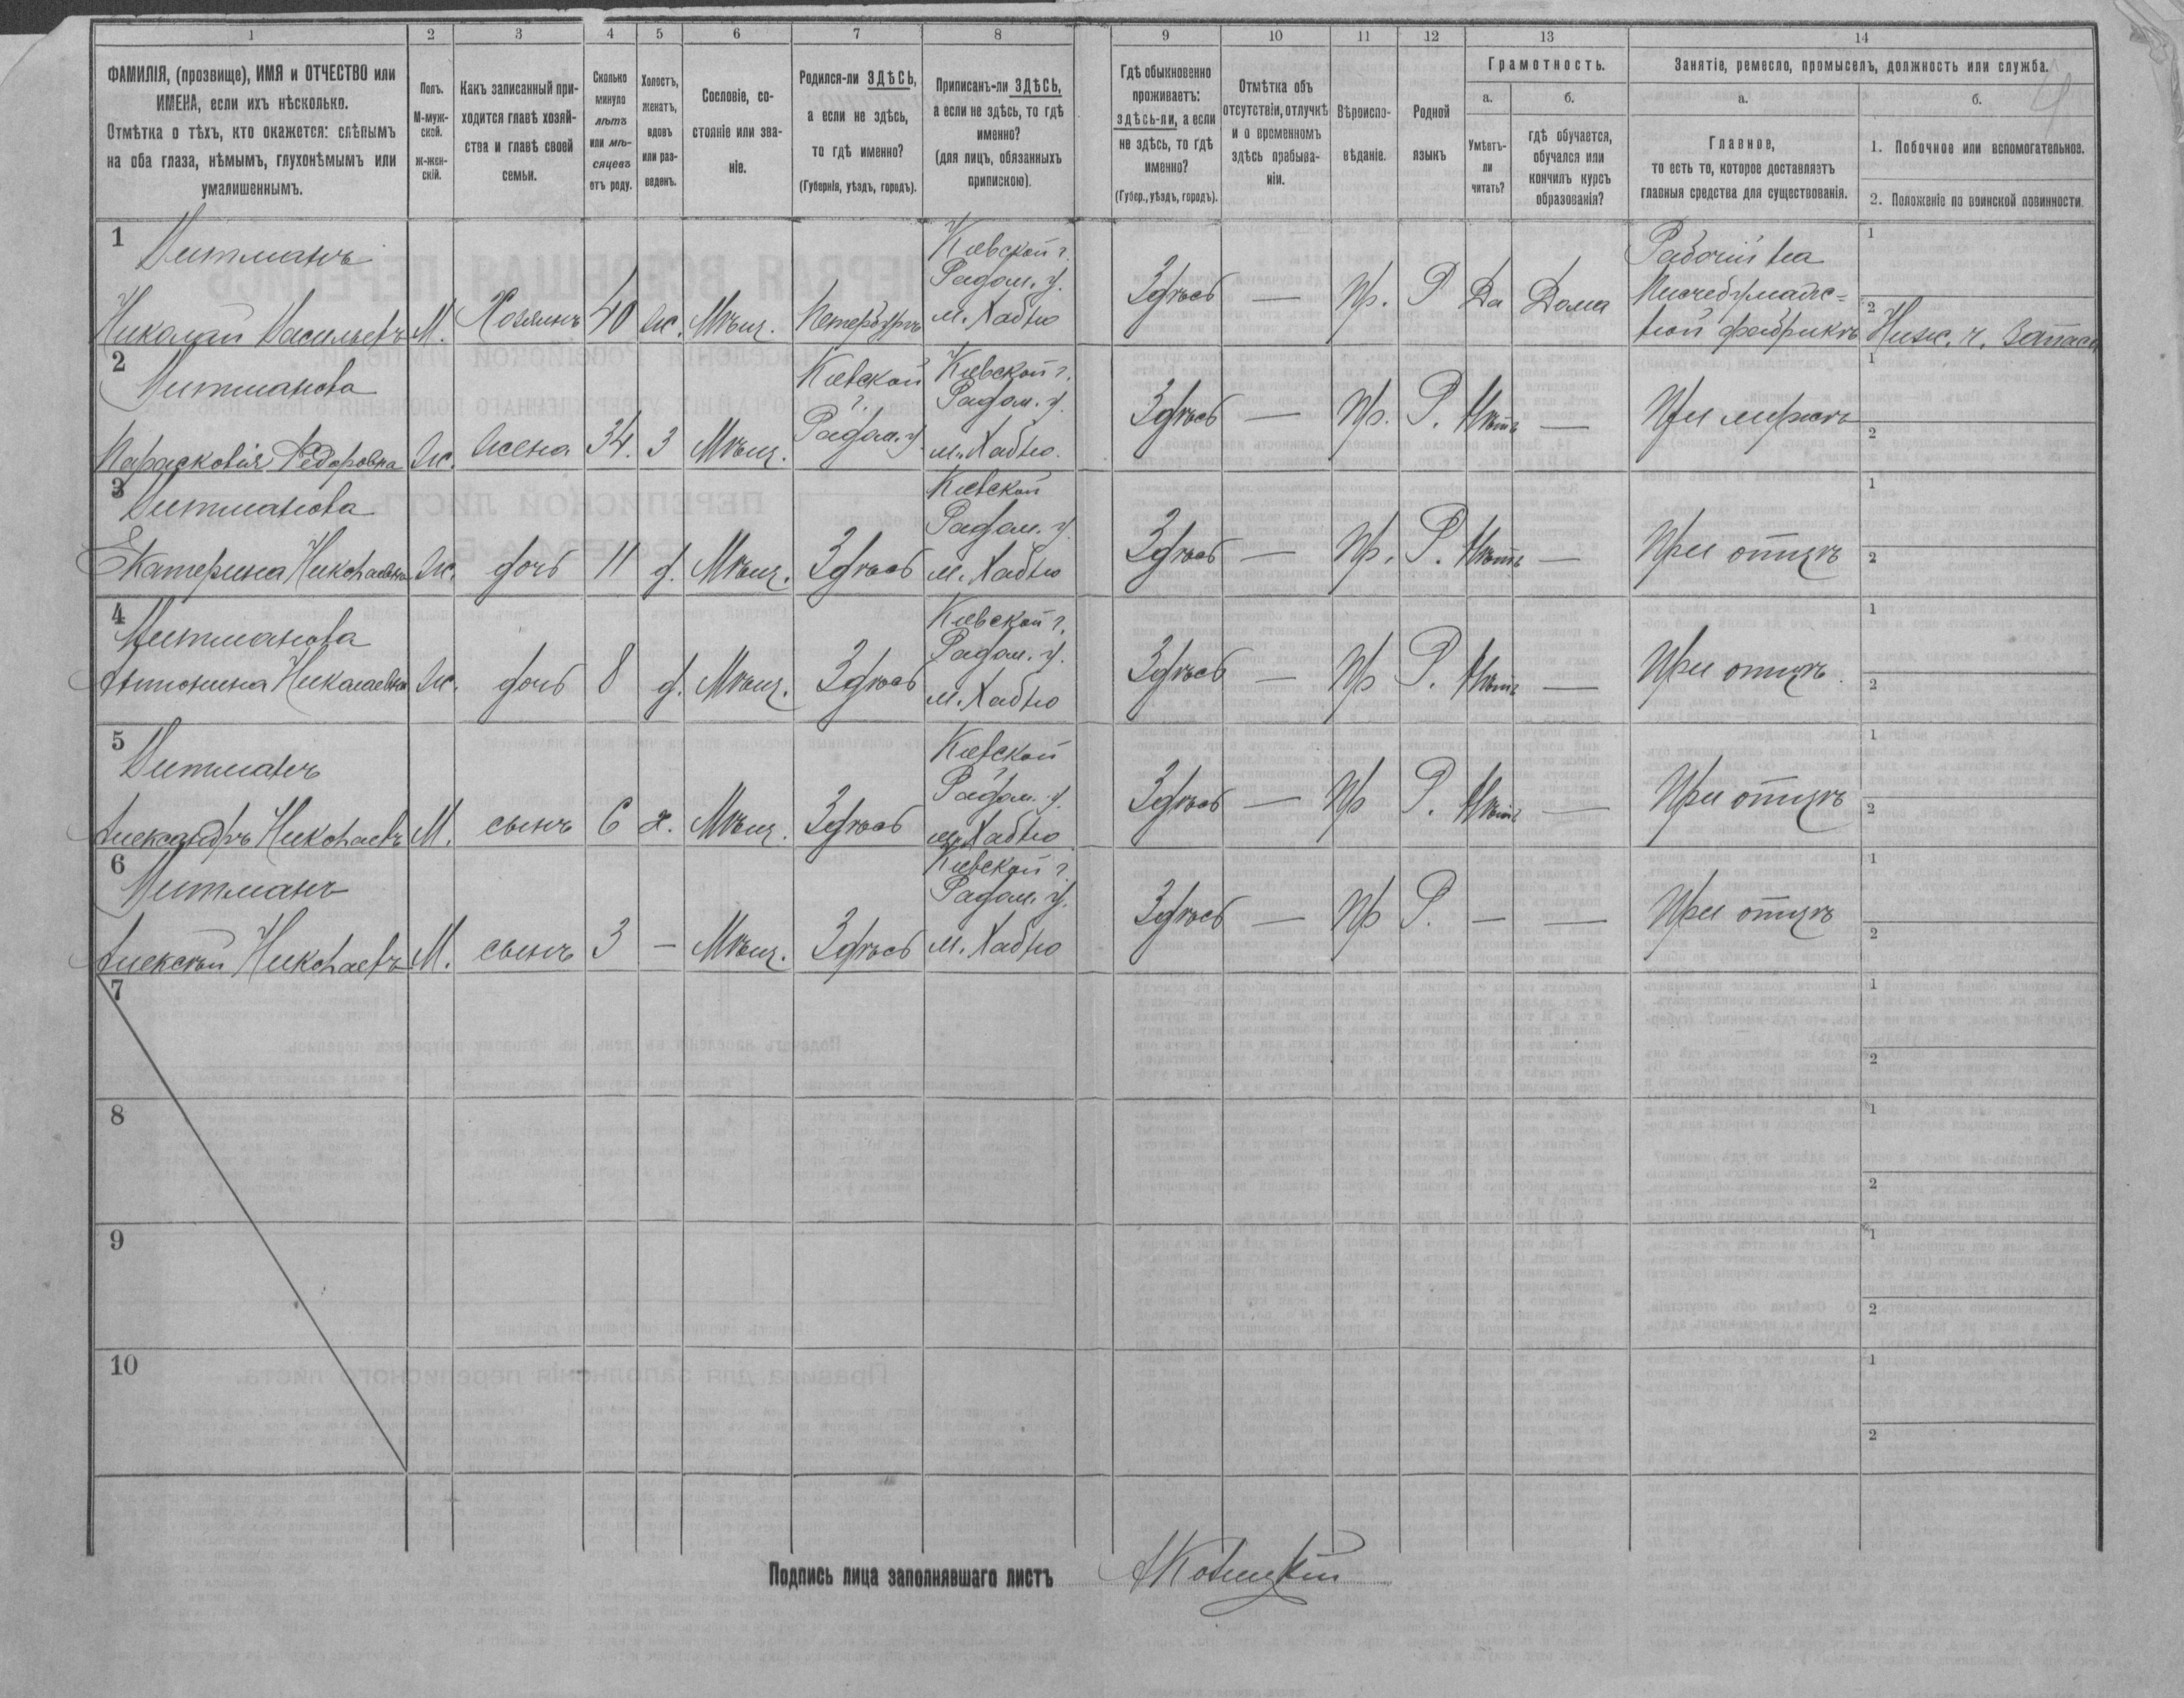 1 2 3 4 5 6 7 8 9 10 11 12 13 14
ФАМИЛІЯ, (прозвище), ИМЯ и ОТЧЕСТВО или
ИМЕНА, если ихъ нѣсколько.
Отмѣтка о тѣхъ, кто окажется: слѣпымъ
на оба глаза, нѣмымъ, глухонѣмымъ или
умалишеннымъ.
Полъ.
М-муж-
ской.
ж-жен-
скій.
Какъ записанный при-
ходится главѣ хозяй-
ства и главѣ своей
семьи.
Сколько
минуло
лѣтъ
или мѣ-
сяцевъ
отъ роду.
Холостъ,
женатъ,
вдовъ
или раз-
веденъ.
Сословіе, со-
стояніе или зва-
ніе.
Родился-ли ЗДѢСЬ,
а если не здѣсь,
то гдѣ именно?
(Губернія, уѣздъ, городъ).
Приписанъ-ли ЗДѢСЬ,
а если не здѣсь, то гдѣ
именно?
(для лицъ, обязанныхъ
припискою).
Гдѣ обыкновенно
проживаетъ:
здѣсь-ли, а если
не здѣсь, то гдѣ
именно?
(Губер., уѣздъ, городъ).
Отмѣтка объ
отсутствіи, отлучкѣ
и о временномъ
здѣсь пребыва-
ніи.
Вѣроиспо-
вѣданіе.
Родной
языкъ
Грамотность.
а.
Умѣетъ-
ли
читать?
б.
гдѣ обучается,
обучался или
кончилъ курсъ
образованія?
Занятіе, ремесло, промыселъ, должность или служба.
а.
Главное,
то есть то, которое доставляетъ
главныя средства для существованія.
б.
1. Побочное или вспомогательное.
2. Положеніе по воинской повинности.
1
Витманъ
Николай Васильевъ
М.
Хозяинъ
40
ж.
Мѣщ.
Петербургъ
Кіевской г.
Радом. у.
м. Хабно
Здѣсь
—
Пр.
Р
Да
Дома
Рабочій на
Писчебумаж=
ной фабрикѣ
1
2
Ниж. ч. запаса
2
Витманова
Парасковія Ѳедоровна
Ж.
Жена
34.
З
Мѣщ.
Кіевской
г.
Радом. у.
Кіевской г.
Радом. у.
м. Хабно.
Здѣсь
—
Пр.
Р.
Нѣтъ
—
При мужѣ
1
2
3
Витманова
Екатерина Николаевна
Ж.
дочь
11
д.
Мѣщ.
Здѣсь
Кіевской
Радом. у.
м. Хабно
Здѣсь
—
Пр.
Р.
Нѣтъ
—
При отцѣ
1
2
4
Витманова
Антонина Николаевна
Ж.
дочь
8
д.
Мѣщ.
Здѣсь
Кіевской г.
Радом. у.
м. Хабно
Здѣсь
—
Пр
Р.
Нѣтъ
—
При отцѣ
1
2
5
Витманъ
Александръ Николаевъ
М.
сынъ
6
х.
Мѣщ.
Здѣсь
Кіевской
г.
Радом. у.
м. Хабно
Здѣсь
—
Пр
Р.
Нѣтъ
—
При отцѣ
1
2
6
Витманъ
Алексѣй Николаевъ
М.
сынъ
3
—
Мѣщ.
Здѣсь
Кіевской г.
Радом. у.
м. Хабно
Здѣсь
—
Пр
Р.
—
—
При отцѣ
1
2
7
1
2
8
1
2
9
1
2
10
1
2
Подпись лица заполнявшаго листъ